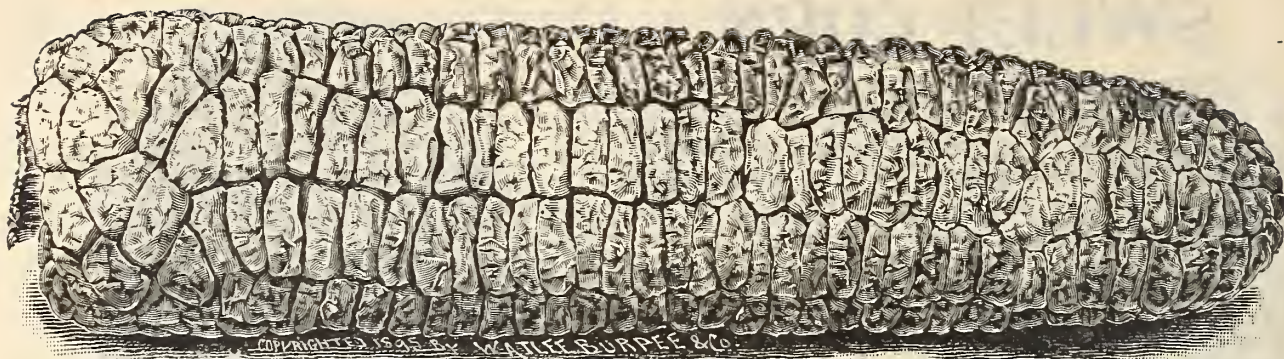 COPYRIGHTED 1895 BY W. ATLEE BURPEE & Co.